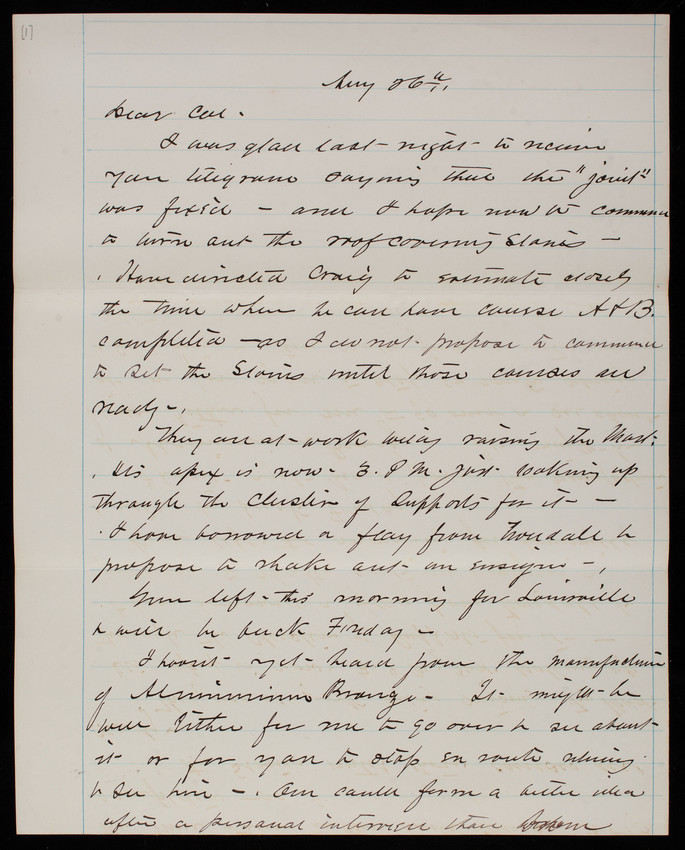 [1]
Aug 26th.
Dear Col.
I was glad last night to receive
your telegram saying that the "joint"
was fixed — and I hope now to commence
to turn out the roof covering Stones —
Have directed Craig to estimate closely
the time when he can have course A & B.
completed — as I do not propose to commence
to set the Stones until those courses are
ready —.
They are at work today raising the Mast:
its apex is now - 3. P M. just looking up
through the cluster of supports for it —
I have borrowed a flag from &
propose to shake out an ensign —,
left this morning for Louisville
& will be back Friday —
I havn't yet heard from the manufacturer
of Aluminium Bronze - It might be
well either for me to go over & see about
it or for you to stop en route
to see him —. One could form a better idea
after a personal interview than